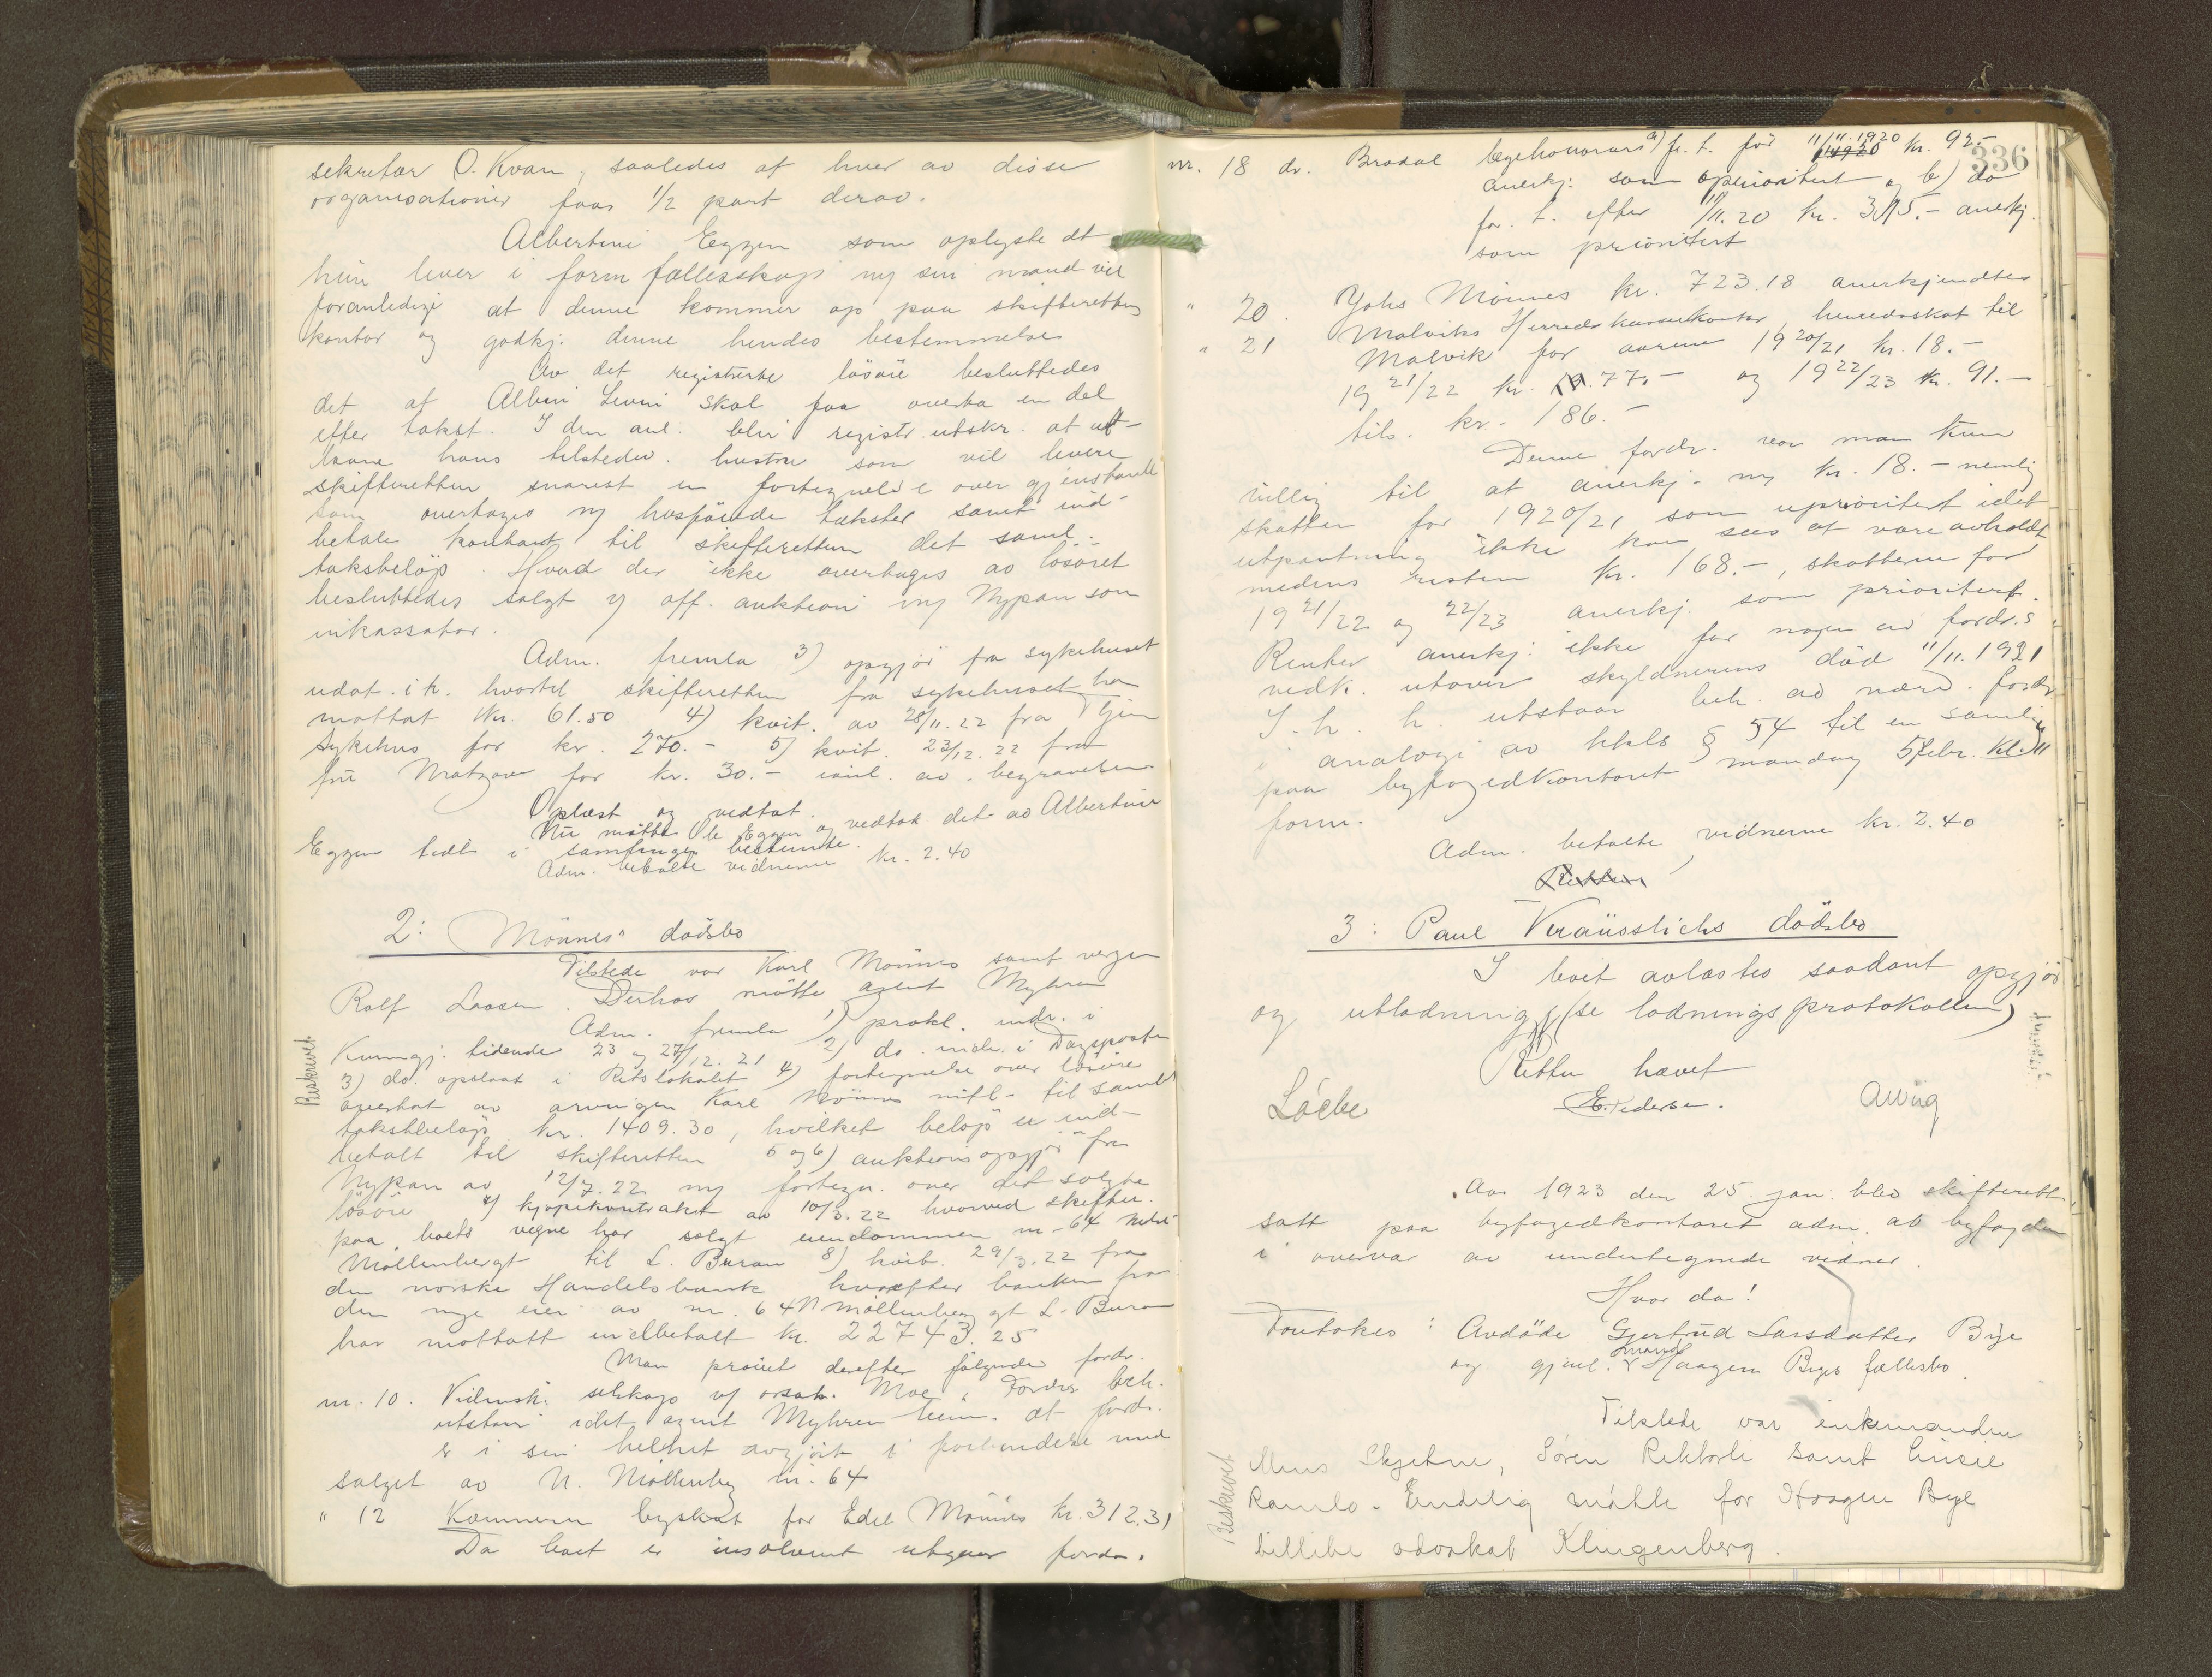 sekretær O. Kvam, saaledes at hver av disse
organisationer faar 1/2 part derav.
Albertine Eggen som oplyste at
hun lever i form fællesskap m/ sin mand vil
foranledige at denne kommer op paa skifterettens
kontor og godkj. denne hendes bestemmelse
Av det registrerte løsøre besluttedes
det at Albin Levin skal faa overta en del
efter takst. I den anl. blir registr. utskr. at ut-
laane hans tilstedev. hustru som vil levere
skifteretten snarest en fortegnelse over gjenstande
som overtages m/ hosføiede takster samt ind-
betale kontant til skifteretten det saml.
takstbeløp. Hvad der ikke overtages av løsøret
besluttedes solgt v/ off. auktion m/ Nypan som
inkassator.
Adm. fremla 3) opgjør fra sykehuset
udat. i h. hvortil skifteretten fra sykehuset har
mottat kr. 61.50 4) kvit. av 28/11.22 fra Thjem
sykehus for kr. 270.- 5) kvit. 23/12.22 fra
fru Matzow for kr. 30.- i anl. av begravelsen
Oplæst og vedtat.
Nu møtte Ole Eggen og vedtok det av Albertine
Eggen tidl. i samlingen bestemte.
Adm. betalte vidnerne kr. 2.40
2: Mønnes' dødsbo
Tilstede var Karl Mønnes samt vergen
Rolf Laasen. Derhos møtte agent Myhren
Adm. fremla 1) prokl. indr. i
Kunngj. tidende 23 og 27/12.21 2) do. indr. i Dagsposten
Beskrevet
3) do. opslaat i Retslokalet 4) fortegnelse over løsøre
overtat av arvingen Karl Mønnes mfl. til samlet
takstbeløp kr. 1409.30, hvilket beløp er ind-
betalt til skifteretten 5 og 6) auktionsopgjør fra
Nypan av 12/7.22 m/ fortegn. over det solgte
løsøre 7) kjøpekontrakt av 10/3.22 hvorved skifter.
paa boets vegne har solgt eiendommen nr. 64 Nedre
Møllenbergt til L. Buran 8) kvit. 29/3.22 fra
den norske Handelsbank hvorefter banken fra
den nye eier av nr. 64 N Møllenberg gt L. Buran
har mottatt indbetalt kr. 22743.25
Man prøvet derefter følgende fordr.
nr. 10. Vidensk. selskap v/ orsak. Moe. Fordrs beh.
utstaar idet agent Myhren mein. at fordr.
er i sin helhet avgjort i forbindelse med
salget av N. Møllenberg nr. 64
" 12 Kæmneren byskat for Edel Mønnes kr. 312.31
Da boet er insolvent utgaar fordr.
336
nr. 18 dr. Bradal lægehonorar a) fr. t. før 11/11.1920 kr. 92.-
anerkj. som uprioritert og b) do
for t. efter 11/11.20 kr. 315.- anerkj.
som prioritert
" 20. Johs Mønnes kr. 723.18 anerkjendtes
" 21 Malviks Herredskassekontor, herredsskat til
Malvik for aarene 1920/21 kr. 18.-
1921/22 kr. 77.- og 1922/23 kr. 91.-
tils. kr. 186.-
Denne fordr. var man kun
villig til at anerkj. m/ kr. 18.- nemlig
skatten for 1920/21 som uprioritert idet
utpantning ikke kan sees at være avholdt
medens resten kr. 168.-, skatterne for
1921/22 og 22/23 anerkj. som prioritert.
Renter anerkj. ikke for nogen av fordr.s
vedk. utover skyldnerens død 11/11.1921
I. h. h. utstaar beh. av nærv. fordr
i analogi av kkls § 54 til en samling
paa byfogedkontoret mandag 5 febr. kl. 11
form.
Adm. betalte vidnerne kr. 2.40
Retten
3: Paul Kraüsslichs dødsbo
I boet avlæstes saadant opgjør
og utlodning (se lodningsprotokollen)
Retten hævet
Løchen E. Pedersen. Awiig
Aar 1923 den 25. jan. blev skifterett
satt paa byfogedkontoret adm. av byfogden
i overvær av undertegnede vidner.
Hvor da!
Foretokes: Avdøde Gjertrud Larsdatter Bye
og gjenl. mand Haagen Byes fællesbo.
Tilstede var enkemanden
Beskrevet
Mens Skjetne, Søren Rekkorli samt Einar
Ramlo. Endelig møtte for Haagen Bye
billibe advokat Klingenberg.